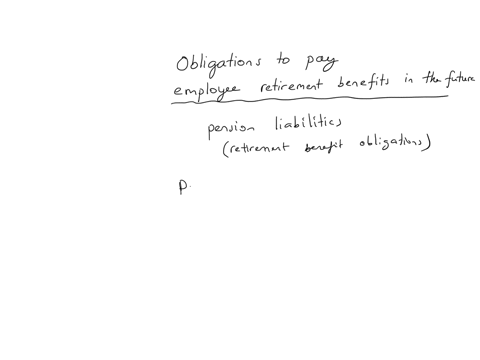 Obligations to pay
employee retirement benefits in the future
pension liabilities
(retirement benefit obligations)
p.